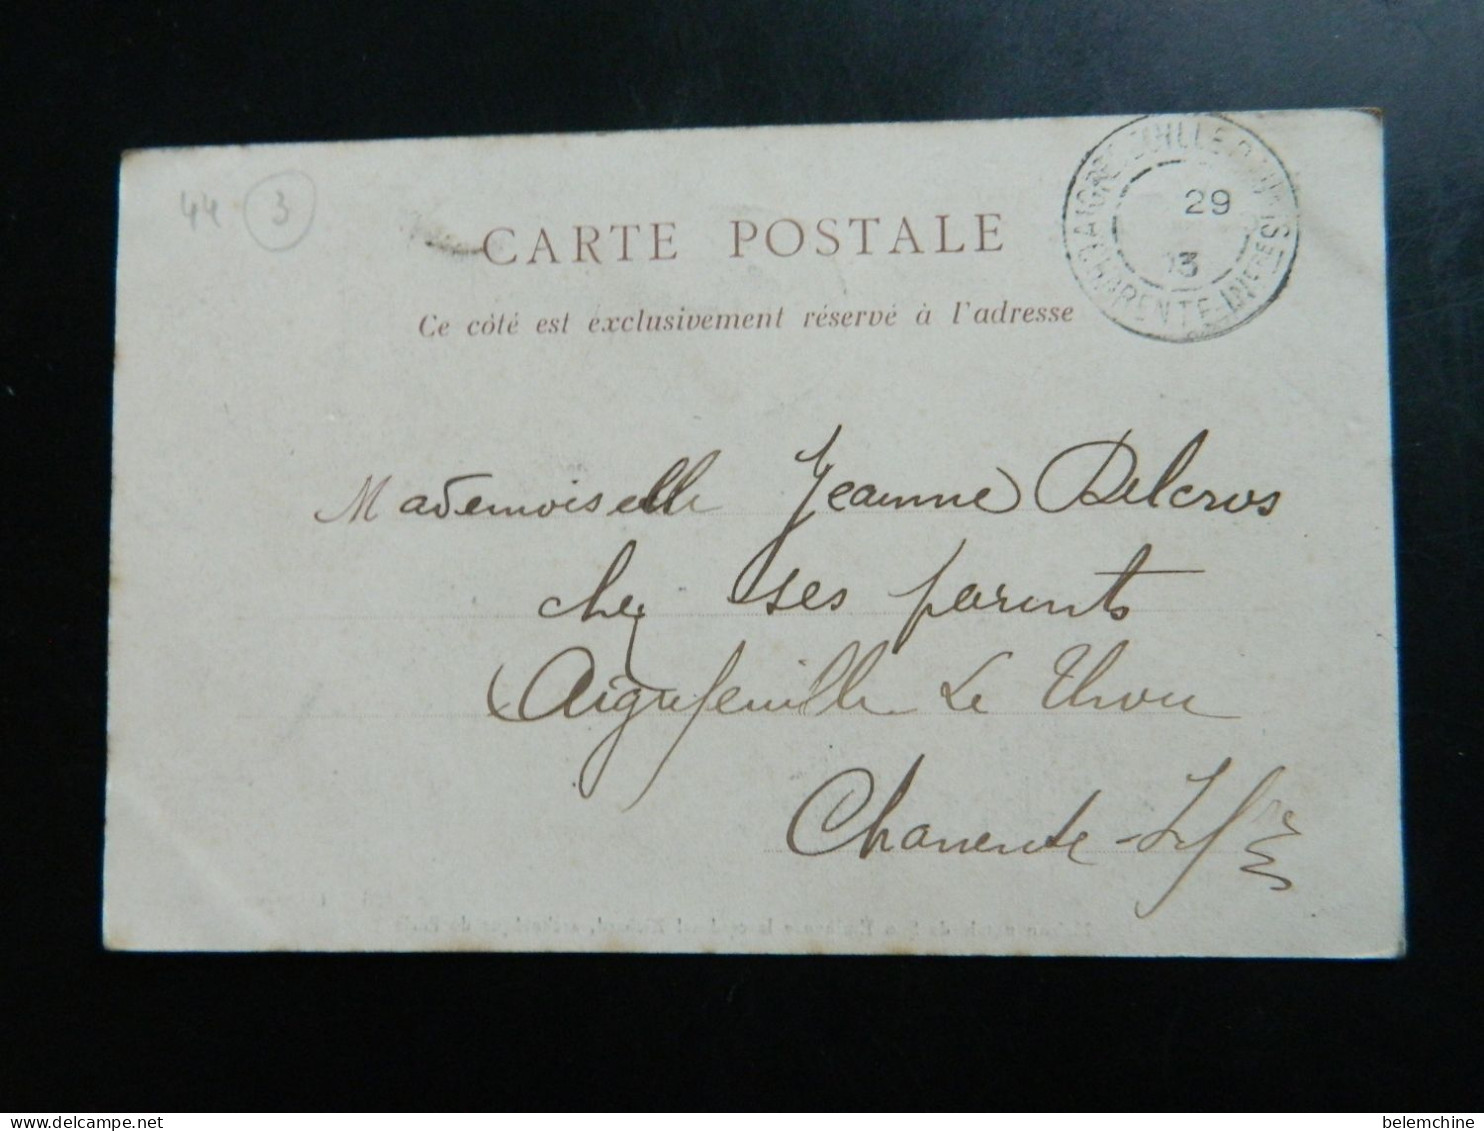 44 3
CARTE POSTALE
Ce côté est exclusivement réservé à l'adresse
AIGREFEUILLE D'AUNIS
29
CHARENTE-INFRE
Mademoiselle Jeanne Delcros
chez ses parents
Aigrefeuille Le Thou
Charente-Infre
www.delcampe.net
belemchine